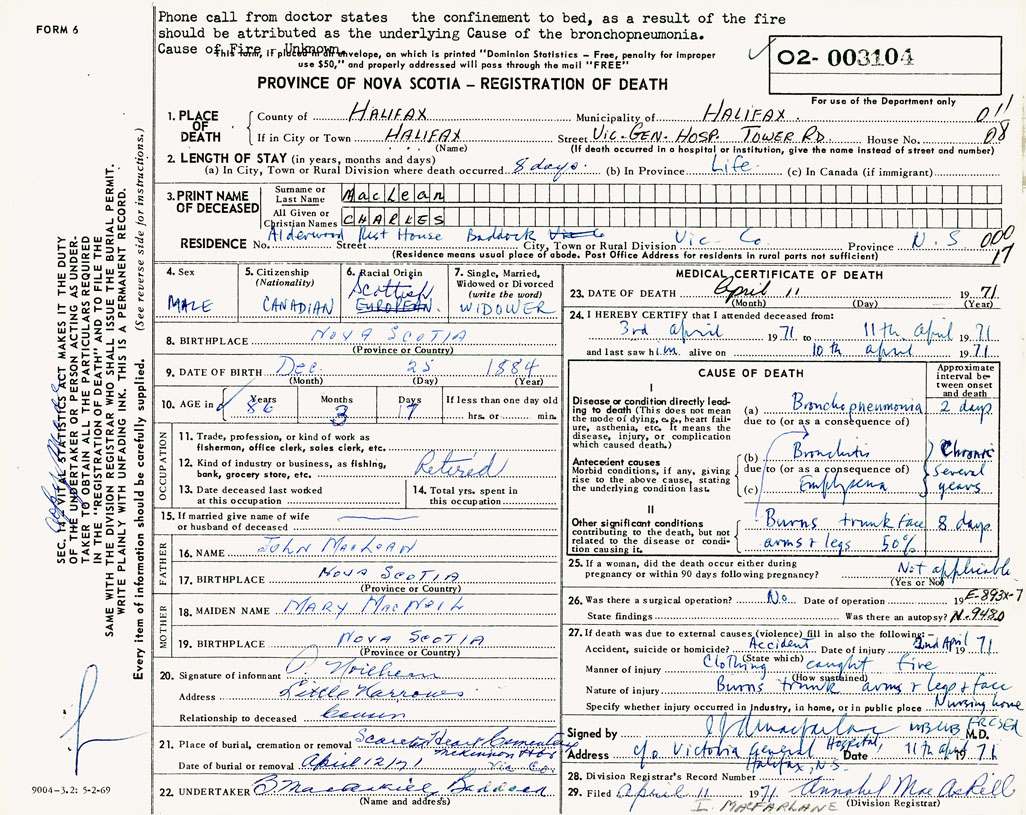 FORM 6
Phone call from doctor states the confinement to bed, as a result of the fire
should be attributed as the underlying Cause of the bronchopneumonia.
Cause of Fire - Unknown
This form, if placed in an envelope, on which is printed "Dominion Statistics - Free, penalty for improper
use $50," and properly addressed will pass through the mail "FREE"
02- 003104
For use of the Department only
PROVINCE OF NOVA SCOTIA — REGISTRATION OF DEATH
1. PLACE OF DEATH
County of HALIFAX Municipality of HALIFAX 011
If in City or Town HALIFAX Street VIC. GEN. HOSP. TOWER RD. House No. 08
(Name) (If death occurred in a hospital or institution, give the name instead of street and number)
2. LENGTH OF STAY (in years, months and days)
(a) In City, Town or Rural Division where death occurred 8 days. (b) In Province Life. (c) In Canada (if immigrant)
3. PRINT NAME OF DECEASED
Surname or Last Name MacLean
All Given or Christian Names CHARLES
RESIDENCE No. Alderwood Rest House Street Baddock City, Town or Rural Division Vic. Co. Province N.S 000
(Residence means usual place of abode. Post Office Address for residents in rural parts not sufficient) 17
4. Sex MALE
5. Citizenship (Nationality) CANADIAN
6. Racial Origin Scottish EUROPEAN.
7. Single, Married, Widowed or Divorced (write the word) WIDOWER
8. BIRTHPLACE NOVA SCOTIA
(Province or Country)
9. DATE OF BIRTH Dec. 25 1884
(Month) (Day) (Year)
10. AGE in Years 86 Months 3 Days 17 If less than one day old hrs. or min.
OCCUPATION
11. Trade, profession, or kind of work as fisherman, office clerk, sales clerk, etc.
12. Kind of industry or business, as fishing, bank, grocery store, etc. Retired
13. Date deceased last worked at this occupation
14. Total yrs. spent in this occupation.
15. If married give name of wife or husband of deceased
FATHER
16. NAME JOHN MACLEAN
17. BIRTHPLACE NOVA SCOTIA
(Province or Country)
MOTHER
18. MAIDEN NAME MARY MACNEIL
19. BIRTHPLACE NOVA SCOTIA
(Province or Country)
20. Signature of informant
Address Little Narrows
Relationship to deceased Cousin
21. Place of burial, cremation or removal Scared Heart Cementery
McKinnon Vic. Co.
Date of burial or removal April 12/71
22. UNDERTAKER B MacAskill Baddeck
(Name and address)
MEDICAL CERTIFICATE OF DEATH
23. DATE OF DEATH April 11 1971
(Month) (Day) (Year)
24. I HEREBY CERTIFY that I attended deceased from:
3rd April 1971 11th April 1971
and last saw him alive on 10th April 1971
CAUSE OF DEATH
Approximate interval between onset and death
I
Disease or condition directly leading to death (This does not mean the mode of dying, e.g., heart failure, asthenia, etc. It means the disease, injury, or complication which caused death.)
(a) Bronchopneumonia 2 days
due to (or as a consequence of)
Antecedent causes
Morbid conditions, if any, giving rise to the above cause, stating the underlying condition last.
(b) Bronchitis Chronic
due to (or as a consequence of) several
(c) Emphysema years
II
Other significant conditions contributing to the death, but not related to the disease or condition causing it.
Burns trunk face 8 days
arms & legs 50%
25. If a woman, did the death occur either during pregnancy or within 90 days following pregnancy? Not applicable
(Yes or No)
26. Was there a surgical operation? No Date of operation 19 E-893X-7
State findings Was there an autopsy? N-9480
27. If death was due to external causes (violence) fill in also the following:—
Accident, suicide or homicide? Accident Date of injury 2nd April 1971
(State which)
Manner of injury Clothing caught Fire
(How sustained)
Nature of injury Burns trunk arms & legs & face
Specify whether injury occurred in industry, in home, or in public place Nursing home
Signed by M.D.
Address c/o Victoria General Hospital, Date 11th April 1971
Halifax, N.S.
28. Division Registrar's Record Number
29. Filed April 11 1971 Annabel MacAskill
(Division Registrar)
I. MACFARLANE
SEC. 14, VITAL STATISTICS ACT MAKES IT THE DUTY
OF THE UNDERTAKER OR PERSON ACTING AS UNDER-
TAKER TO OBTAIN ALL THE PARTICULARS REQUIRED
IN THE "REGISTRATION OF DEATH" AND TO FILE THE
SAME WITH THE DIVISION REGISTRAR WHO SHALL ISSUE THE BURIAL PERMIT.
WRITE PLAINLY WITH UNFADING INK. THIS IS A PERMANENT RECORD.
Every item of information should be carefully supplied. (See reverse side for instructions.)
9004-3.2: 5-2-69